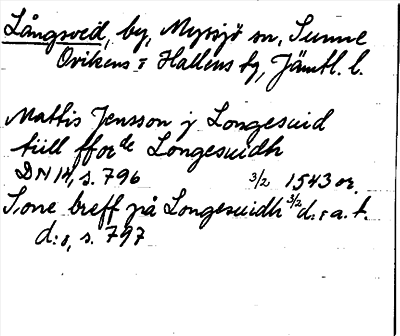 Långsved, by, Myssjö sn, Sunne
Ovikens o Hallens tg, Jämtl. l.
Mattis Jensson j Longesuid
tiill ffor de Longesuidh
DN 14, s. 796 3/2 1543 or.
breff på Longesuidh 3/2 d:o a. t.
d:o, s. 797